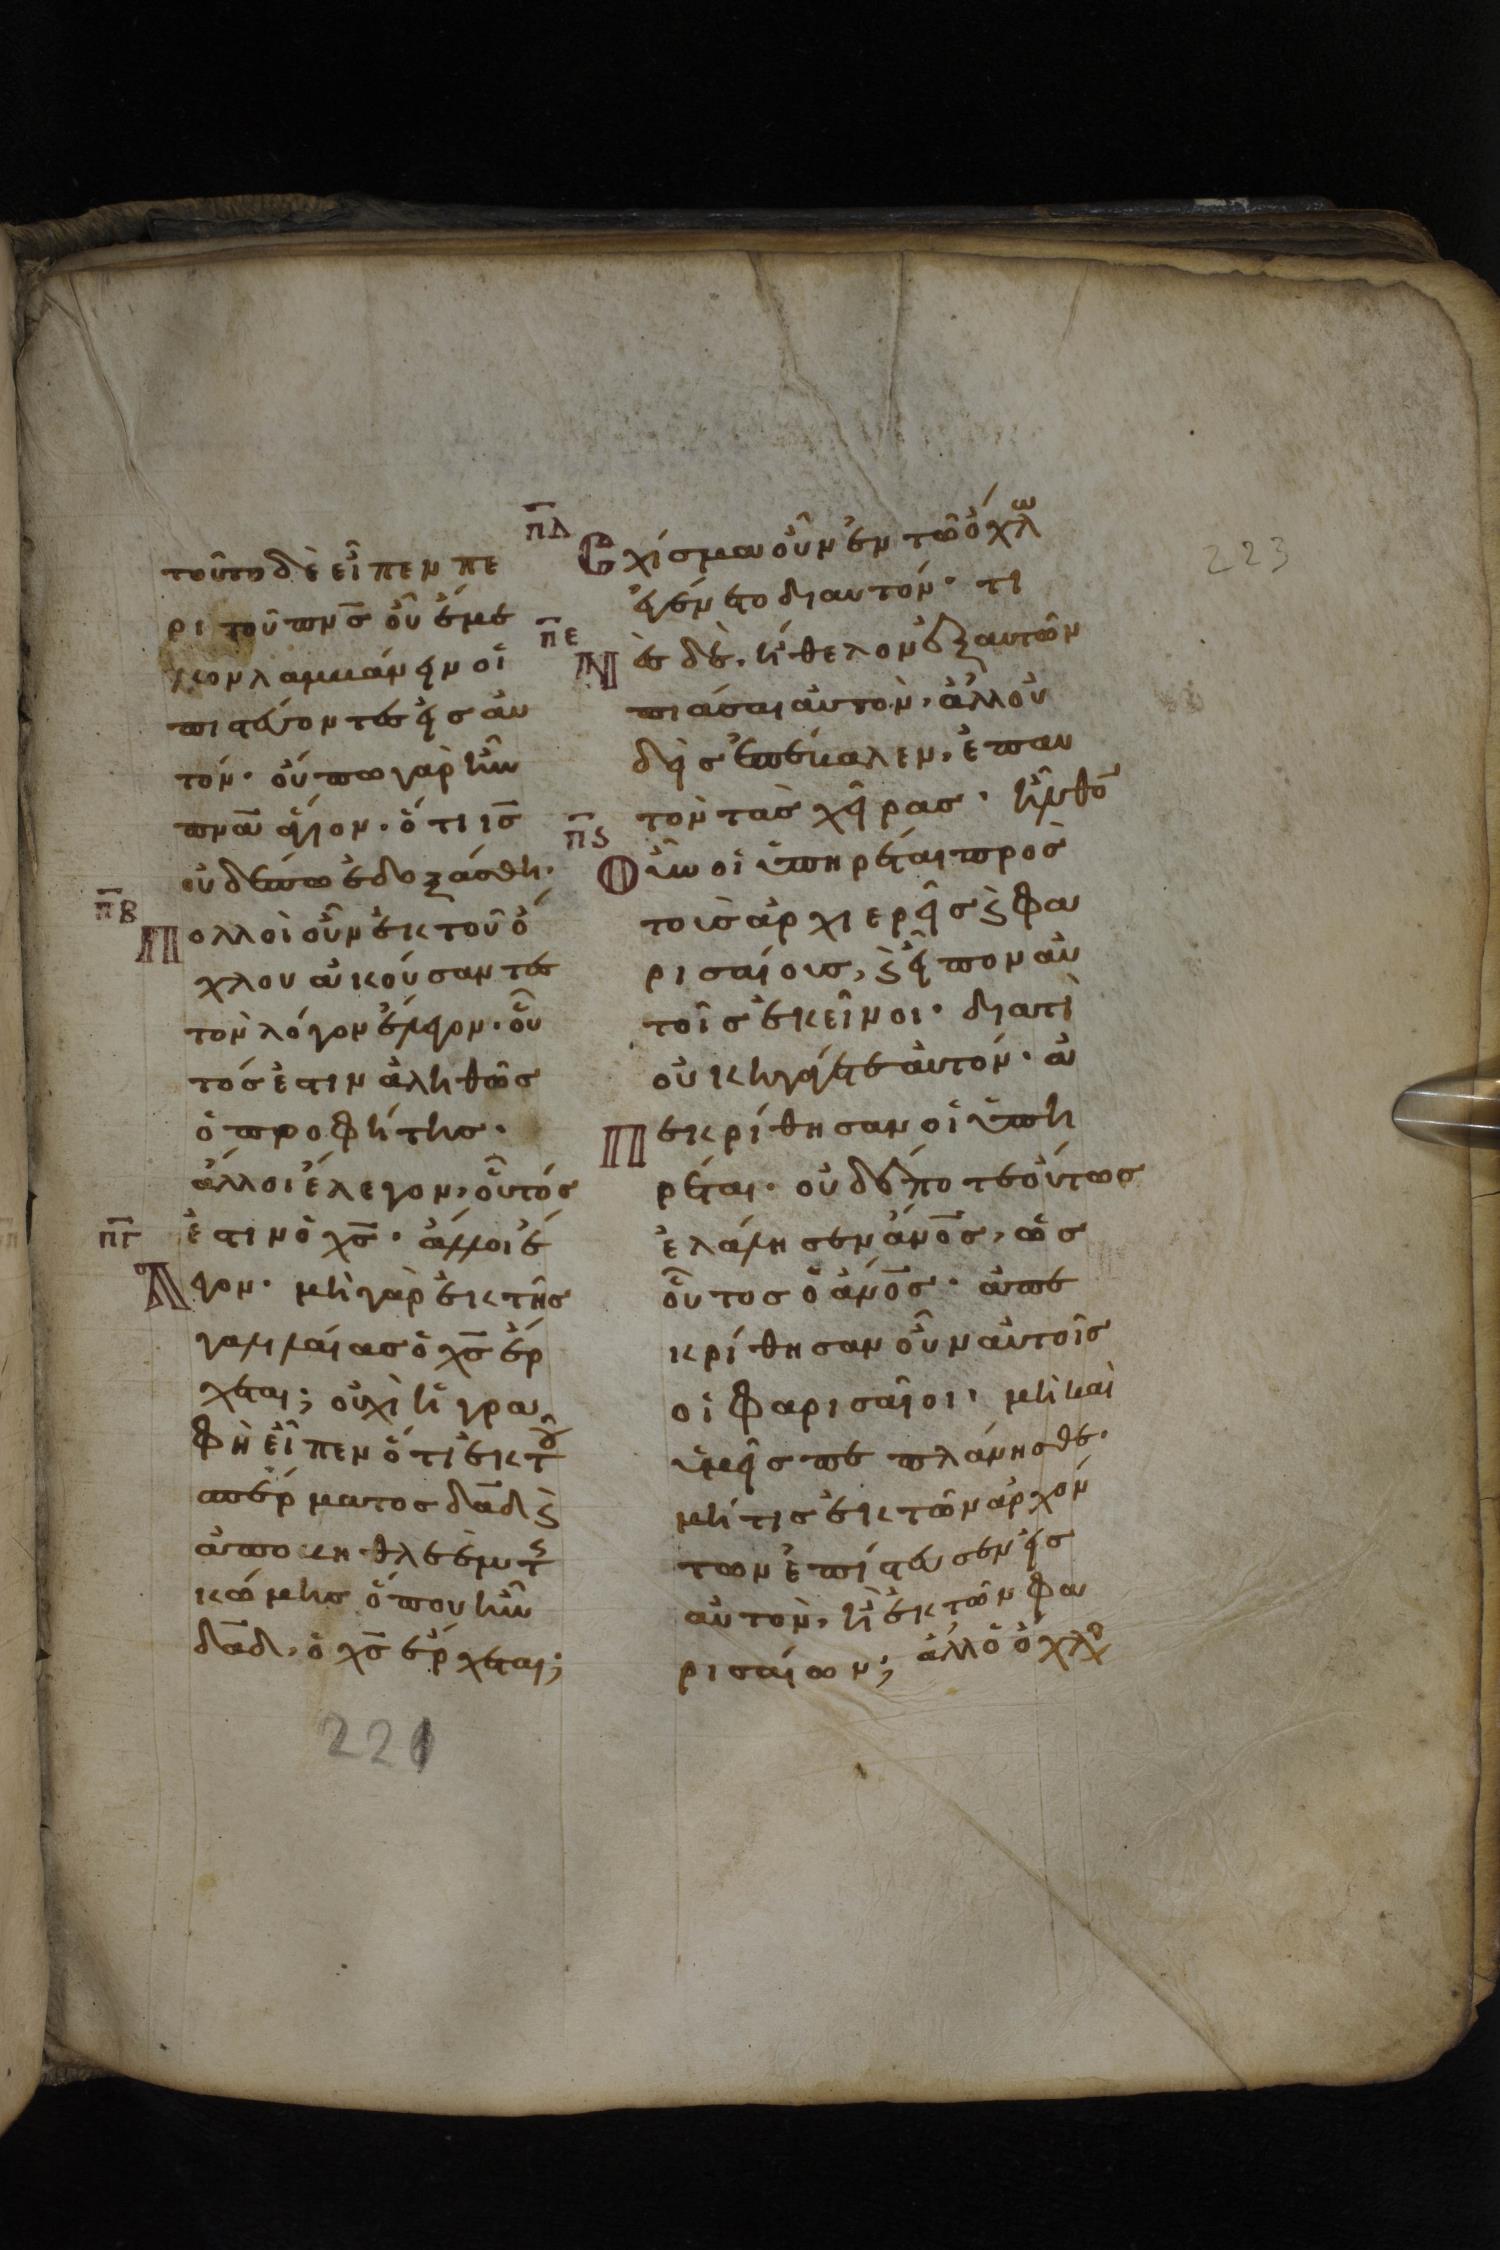 τοῦτο δὲ εἶπεν πε
ρι τοῦ πν̅σ̅ οὗ ἔμε
λον λαμβάνειν οἱ
πιστεύοντες εἰς αὐ
τόν· οὔπω γὰρ ἦν
πν̅α̅ ἅγιον· ὅτι ι̅σ̅
οὐδέπω ἐδοξάσθη·
π̅β̅
Πολλοὶ οὖν ἐκ τοῦ ὄ
χλου ἀκούσαντες
τὸν λόγον ἔλεγον· οὗ
τός ἐστιν ἀληθῶς
ὁ προφήτης·
ἄλλοι ἔλεγον, οὗτός
π̅γ̅
ἐστιν ὁ χ̅σ̅· ἄλλοι ἔ
Λεγον· μὴ γὰρ ἐκ τῆς
γαλιλαίας ὁ χ̅σ̅ ἔρ
χεται; οὐχὶ ἡ γρα
φὴ εἶπεν ὅτι ἐκ τοῦ
σπέρματος δα̅δ̅ ϗ
ἀπὸ βηθλεὲμ τῆς
κώμης ὅπου ἦν
δα̅δ̅, ὁ χ̅σ̅ ἔρχεται;
221
π̅δ̅
Σχίσμα οὖν ἐν τῷ ὄχλω
ἐγένετο δι αυτόν· τι
π̅ε̅
Νὲς δὲ ἤθελον ἐξ αυτῶν
πιάσαι αὐτὸν, ἀλλ οὐ
δεὶς ἐπέβαλεν, ἐπ αυ
τὸν τὰς χεῖρας· ἦλθον
π̅ϛ̅
Οὖν οἱ ὑπηρέται πρὸς
τοὺς ἀρχιερεῖς ϗ φα
ρισαίους, ϗ εἶπον αὐ
τοῖς ἐκεῖνοι· διατὶ
οὐκ ἠγάγετε αὐτόν· ἀ
Πεκρίθησαν οἱ ὑπη
ρέται· οὐδέποτε οὕτως
ἐλάλησεν ἄν̅ο̅σ̅, ὡς
οὗτος ὁ ἄν̅ο̅σ̅· ἀπε
κρίθησαν οὖν αὐτοῖς
οἱ φαρισαῖοι· μὴ καὶ
ὑμεῖς πεπλάνησθε·
μή τις ἐκ τῶν ἀρχόν
των ἐπίστευσεν εἰς
αὐτὸν, ἢ ἐκ τῶν φα
ρισαίων; ἀλλ ὁ ὄχλος
223